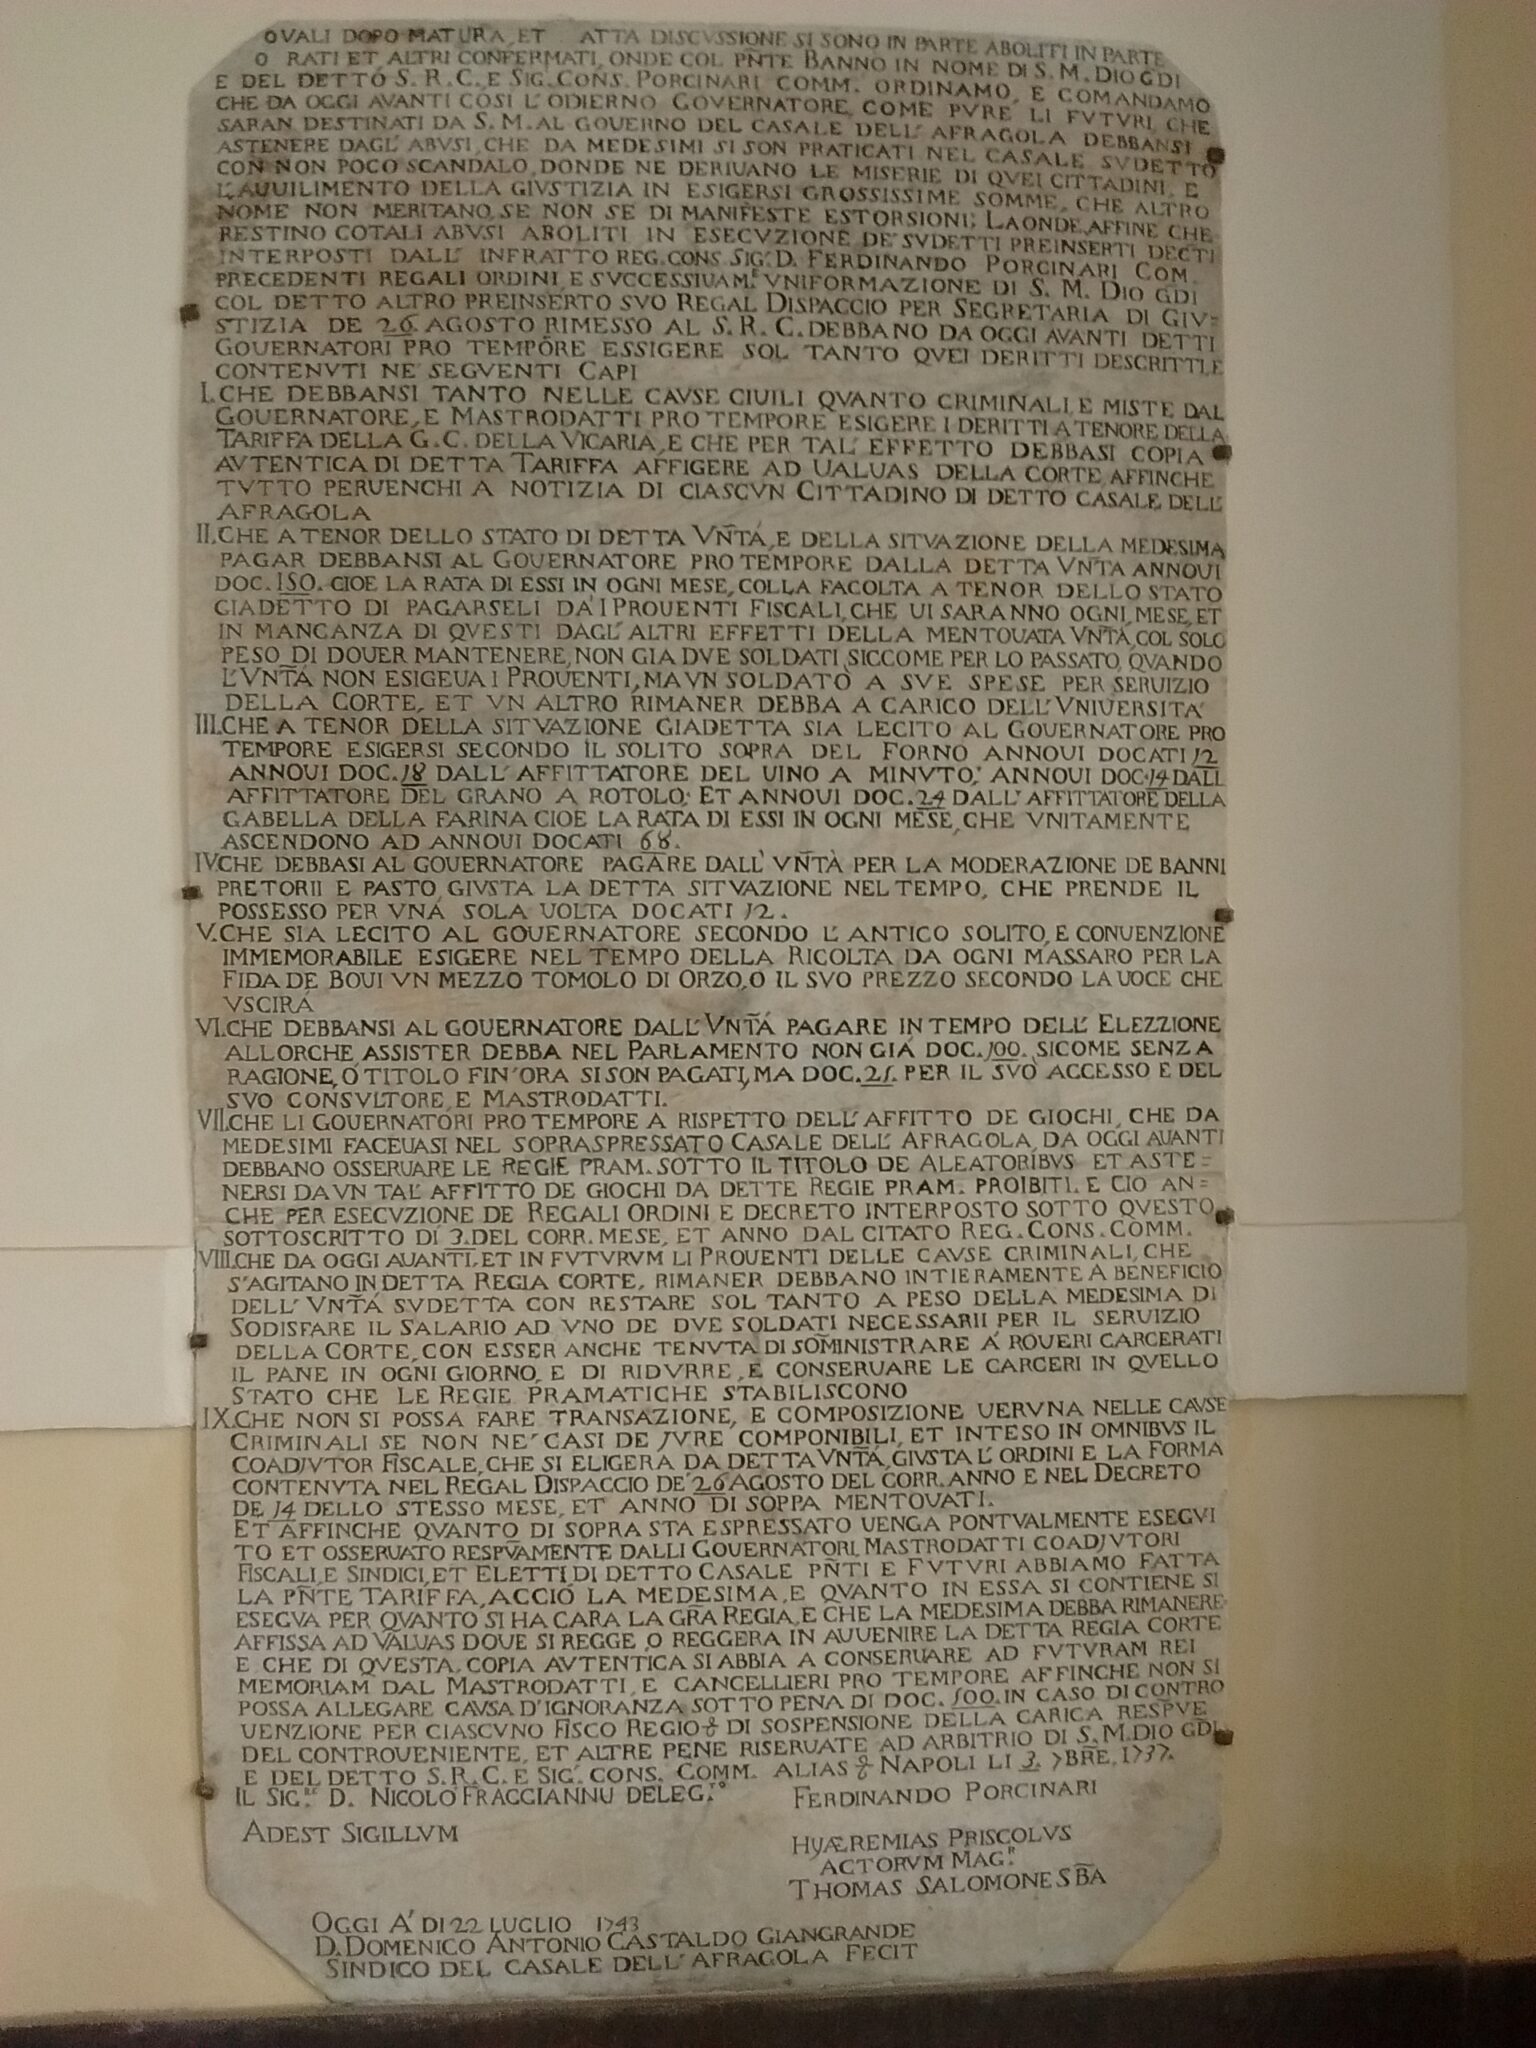 QVALI DOPO MATURA, ET ATTA DISCVSSIONE SI SONO IN PARTE ABOLITI IN PARTE
O RATI ET ALTRI CONFERMATI, ONDE COL PÑTE BANNO IN NOME DI S. M. DIO GDI
E DEL DETTO S. R. C. E SIG. CONS. PORCINARI COMM. ORDINAMO, E COMANDAMO
CHE DA OGGI AVANTI COSI L'ODIERNO GOVERNATORE, COME PVRE LI FVTVRI, CHE
SARAN DESTINATI DA S. M. AL GOUERNO DEL CASALE DELL' AFRAGOLA DEBBANSI
ASTENERE DAGL' ABVSI, CHE DA MEDESIMI SI SON PRATICATI NEL CASALE SVDETTO
CON NON POCO SCANDALO, DONDE NE DERIUANO LE MISERIE DI QVEI CITTADINI, E
L'AUUILIMENTO DELLA GIVSTIZIA IN ESIGERSI GROSSISSIME SOMME, CHE ALTRO
NOME NON MERITANO, SE NON SE DI MANIFESTE ESTORSIONI; LAONDE, AFFINE CHE
RESTINO COTALI ABVSI ABOLITI IN ESECVZIONE DE' SVDETTI PREINSERTI DECTI
INTERPOSTI DALL' INFRATTO REG. CONS. SIG. D. FERDINANDO PORCINARI COM.
PRECEDENTI REGALI ORDINI, E SVCCESSIUAM.E VNIFORMAZIONE DI S. M. DIO GDI
COL DETTO ALTRO PREINSERTO SVO REGAL DISPACCIO PER SEGRETARIA DI GIV=
STIZIA DE 26 AGOSTO RIMESSO AL S. R. C. DEBBANO DA OGGI AVANTI DETTI
GOUERNATORI PRO TEMPORE ESSIGERE SOL TANTO QVEI DERITTI DESCRITTI, E
CONTENVTI NE' SEGVENTI CAPI
I. CHE DEBBANSI TANTO NELLE CAVSE CIUILI QVANTO CRIMINALI, E MISTE DAL
GOUERNATORE, E MASTRODATTI PRO TEMPORE ESIGERE I DERITTI A TENORE DELLA
TARIFFA DELLA G. C. DELLA VICARIA, E CHE PER TAL' EFFETTO DEBBASI COPIA
AVTENTICA DI DETTA TARIFFA AFFIGERE AD UALUAS DELLA CORTE, AFFINCHE
TVTTO PERUENCHI A NOTIZIA DI CIASCVN CITTADINO DI DETTO CASALE DELL'
AFRAGOLA
II. CHE A TENOR DELLO STATO DI DETTA VÑTÁ, E DELLA SITVAZIONE DELLA MEDESIMA
PAGAR DEBBANSI AL GOUERNATORE PRO TEMPORE DALLA DETTA VÑTA ANNOUI
DOC. 150. CIOE LA RATA DI ESSI IN OGNI MESE, COLLA FACOLTA A TENOR DELLO STATO
GIADETTO DI PAGARSELI DA' I PROUENTI FISCALI, CHE UI SARANNO OGNI MESE, ET
IN MANCANZA DI QVESTI DAGL' ALTRI EFFETTI DELLA MENTOUATA VÑTÁ, COL SOLO
PESO DI DOUER MANTENERE, NON GIA DVE SOLDATI, SICCOME PER LO PASSATO, QVANDO
L'VÑTÁ NON ESIGEUA I PROUENTI, MA VN SOLDATO A SVE SPESE PER SERUIZIO
DELLA CORTE, ET VN ALTRO RIMANER DEBBA A CARICO DELL'VNIUERSITA'
III. CHE A TENOR DELLA SITVAZIONE GIADETTA SIA LECITO AL GOUERNATORE PRO
TEMPORE ESIGERSI SECONDO IL SOLITO SOPRA DEL FORNO ANNOUI DOCATI 12
ANNOUI DOC. 18 DALL' AFFITTATORE DEL UINO A MINVTO; ANNOUI DOC. 14 DALL
AFFITTATORE DEL GRANO A ROTOLO; ET ANNOUI DOC. 24 DALL' AFFITTATORE DELLA
GABELLA DELLA FARINA CIOE LA RATA DI ESSI IN OGNI MESE, CHE VNITAMENTE
ASCENDONO AD ANNOUI DOCATI 68.
IV. CHE DEBBASI AL GOUERNATORE PAGARE DALL' VÑTÀ PER LA MODERAZIONE DE BANNI
PRETORII E PASTO, GIVSTA LA DETTA SITVAZIONE NEL TEMPO, CHE PRENDE IL
POSSESSO PER VNA SOLA UOLTA DOCATI 12.
V. CHE SIA LECITO AL GOUERNATORE SECONDO L' ANTICO SOLITO, E CONUENZIONE
IMMEMORABILE ESIGERE NEL TEMPO DELLA RICOLTA DA OGNI MASSARO PER LA
FIDA DE BOUI VN MEZZO TOMOLO DI ORZO, O IL SVO PREZZO SECONDO LA UOCE CHE
VSCIRÁ
VI. CHE DEBBANSI AL GOUERNATORE DALL' VÑTÁ PAGARE IN TEMPO DELL' ELEZZIONE
ALLORCHE ASSISTER DEBBA NEL PARLAMENTO NON GIÁ DOC. 100. SICOME SENZA
RAGIONE, O TITOLO FIN' ORA SI SON PAGATI, MA DOC. 25. PER IL SVO ACCESSO E DEL
SVO CONSVLTORE, E MASTRODATTI.
VII. CHE LI GOUERNATORI PRO TEMPORE A RISPETTO DELL' AFFITTO DE GIOCHI, CHE DA
MEDESIMI FACEUASI NEL SOPRASPRESSATO CASALE DELL' AFRAGOLA, DA OGGI AUANTI
DEBBANO OSSERUARE LE REGIE PRAM. SOTTO IL TITOLO DE ALEATORIBVS ET ASTE=
NERSI DA VN TAL' AFFITTO DE GIOCHI DA DETTE REGIE PRAM. PROIBITI. E CIO AN=
CHE PER ESECVZIONE DE REGALI ORDINI E DECRETO INTERPOSTO SOTTO QVESTO
SOTTOSCRITTO DI 3. DEL CORR. MESE, ET ANNO DAL CITATO REG. CONS. COMM.
VIII. CHE DA OGGI AUANTI, ET IN FVTVRVM LI PROUENTI DELLE CAVSE CRIMINALI, CHE
S'AGITANO IN DETTA REGIA CORTE, RIMANER DEBBANO INTIERAMENTE A BENEFICIO
DELL' VÑTÁ SVDETTA CON RESTARE SOL TANTO A PESO DELLA MEDESIMA DI
SODISFARE IL SALARIO AD VNO DE DVE SOLDATI NECESSARII PER IL SERUIZIO
DELLA CORTE, CON ESSER ANCHE TENVTA DI SOM̃INISTRARE A' POUERI CARCERATI
IL PANE IN OGNI GIORNO, E DI RIDVRRE, E CONSERUARE LE CARCERI IN QVELLO
STATO CHE LE REGIE PRAMATICHE STABILISCONO
IX. CHE NON SI POSSA FARE TRANSAZIONE, E COMPOSIZIONE UERVNA NELLE CAVSE
CRIMINALI SE NON NE' CASI DE JVRE COMPONIBILI, ET INTESO IN OMNIBVS IL
COADJVTOR FISCALE, CHE SI ELIGERA DA DETTA VÑTÁ, GIVSTA L' ORDINI E LA FORMA
CONTENVTA NEL REGAL DISPACCIO DE' 26 AGOSTO DEL CORR. ANNO E NEL DECRETO
DE 14 DELLO STESSO MESE, ET ANNO DI SOPPA MENTOUATI.
ET AFFINCHE QVANTO DI SOPRA STA ESPRESSATO UENGA PONTVALMENTE ESEGVI
TO ET OSSERUATO RESPṼAMENTE DALLI GOUERNATORI, MASTRODATTI COADJVTORI
FISCALI, E SINDICI, ET ELETTI DI DETTO CASALE PÑTI E FVTVRI ABBIAMO FATTA
LA PÑTE TARIFFA, ACCIÓ LA MEDESIMA, E QVANTO IN ESSA SI CONTIENE SI
ESEGVA PER QVANTO SI HA CARA LA GR̃A REGIA, E CHE LA MEDESIMA DEBBA RIMANERE
AFFISSA AD VALUAS DOUE SI REGGE, O REGGERA IN AUUENIRE LA DETTA REGIA CORTE
E CHE DI QVESTA, COPIA AVTENTICA SI ABBIA A CONSERUARE AD FVTVRAM REI
MEMORIAM DAL MASTRODATTI, E CANCELLIERI PRO TEMPORE AFFINCHE NON SI
POSSA ALLEGARE CAVSA D'IGNORANZA SOTTO PENA DI DOC. 500. IN CASO DI CONTRO
UENZIONE PER CIASCVNO FISCO REGIO & DI SOSPENSIONE DELLA CARICA RESPVE
DEL CONTROUENIENTE, ET ALTRE PENE RISERUATE AD ARBITRIO DI S. M. DIO GDI
E DEL DETTO S. R. C. E SIG. CONS. COMM. ALIAS & NAPOLI LI 3. 7BRE. 1737.
IL SIG.RE D. NICOLO FRAGGIANNU DELEG.TO FERDINANDO PORCINARI
ADEST SIGILLVM
HYÆREMIAS PRISCOLVS
ACTORVM MAG.R
THOMAS SALOMONE SB̃A
OGGI A' DI 22 LUGLIO 1743
D. DOMENICO ANTONIO CASTALDO GIANGRANDE
SINDICO DEL CASALE DELL' AFRAGOLA FECIT